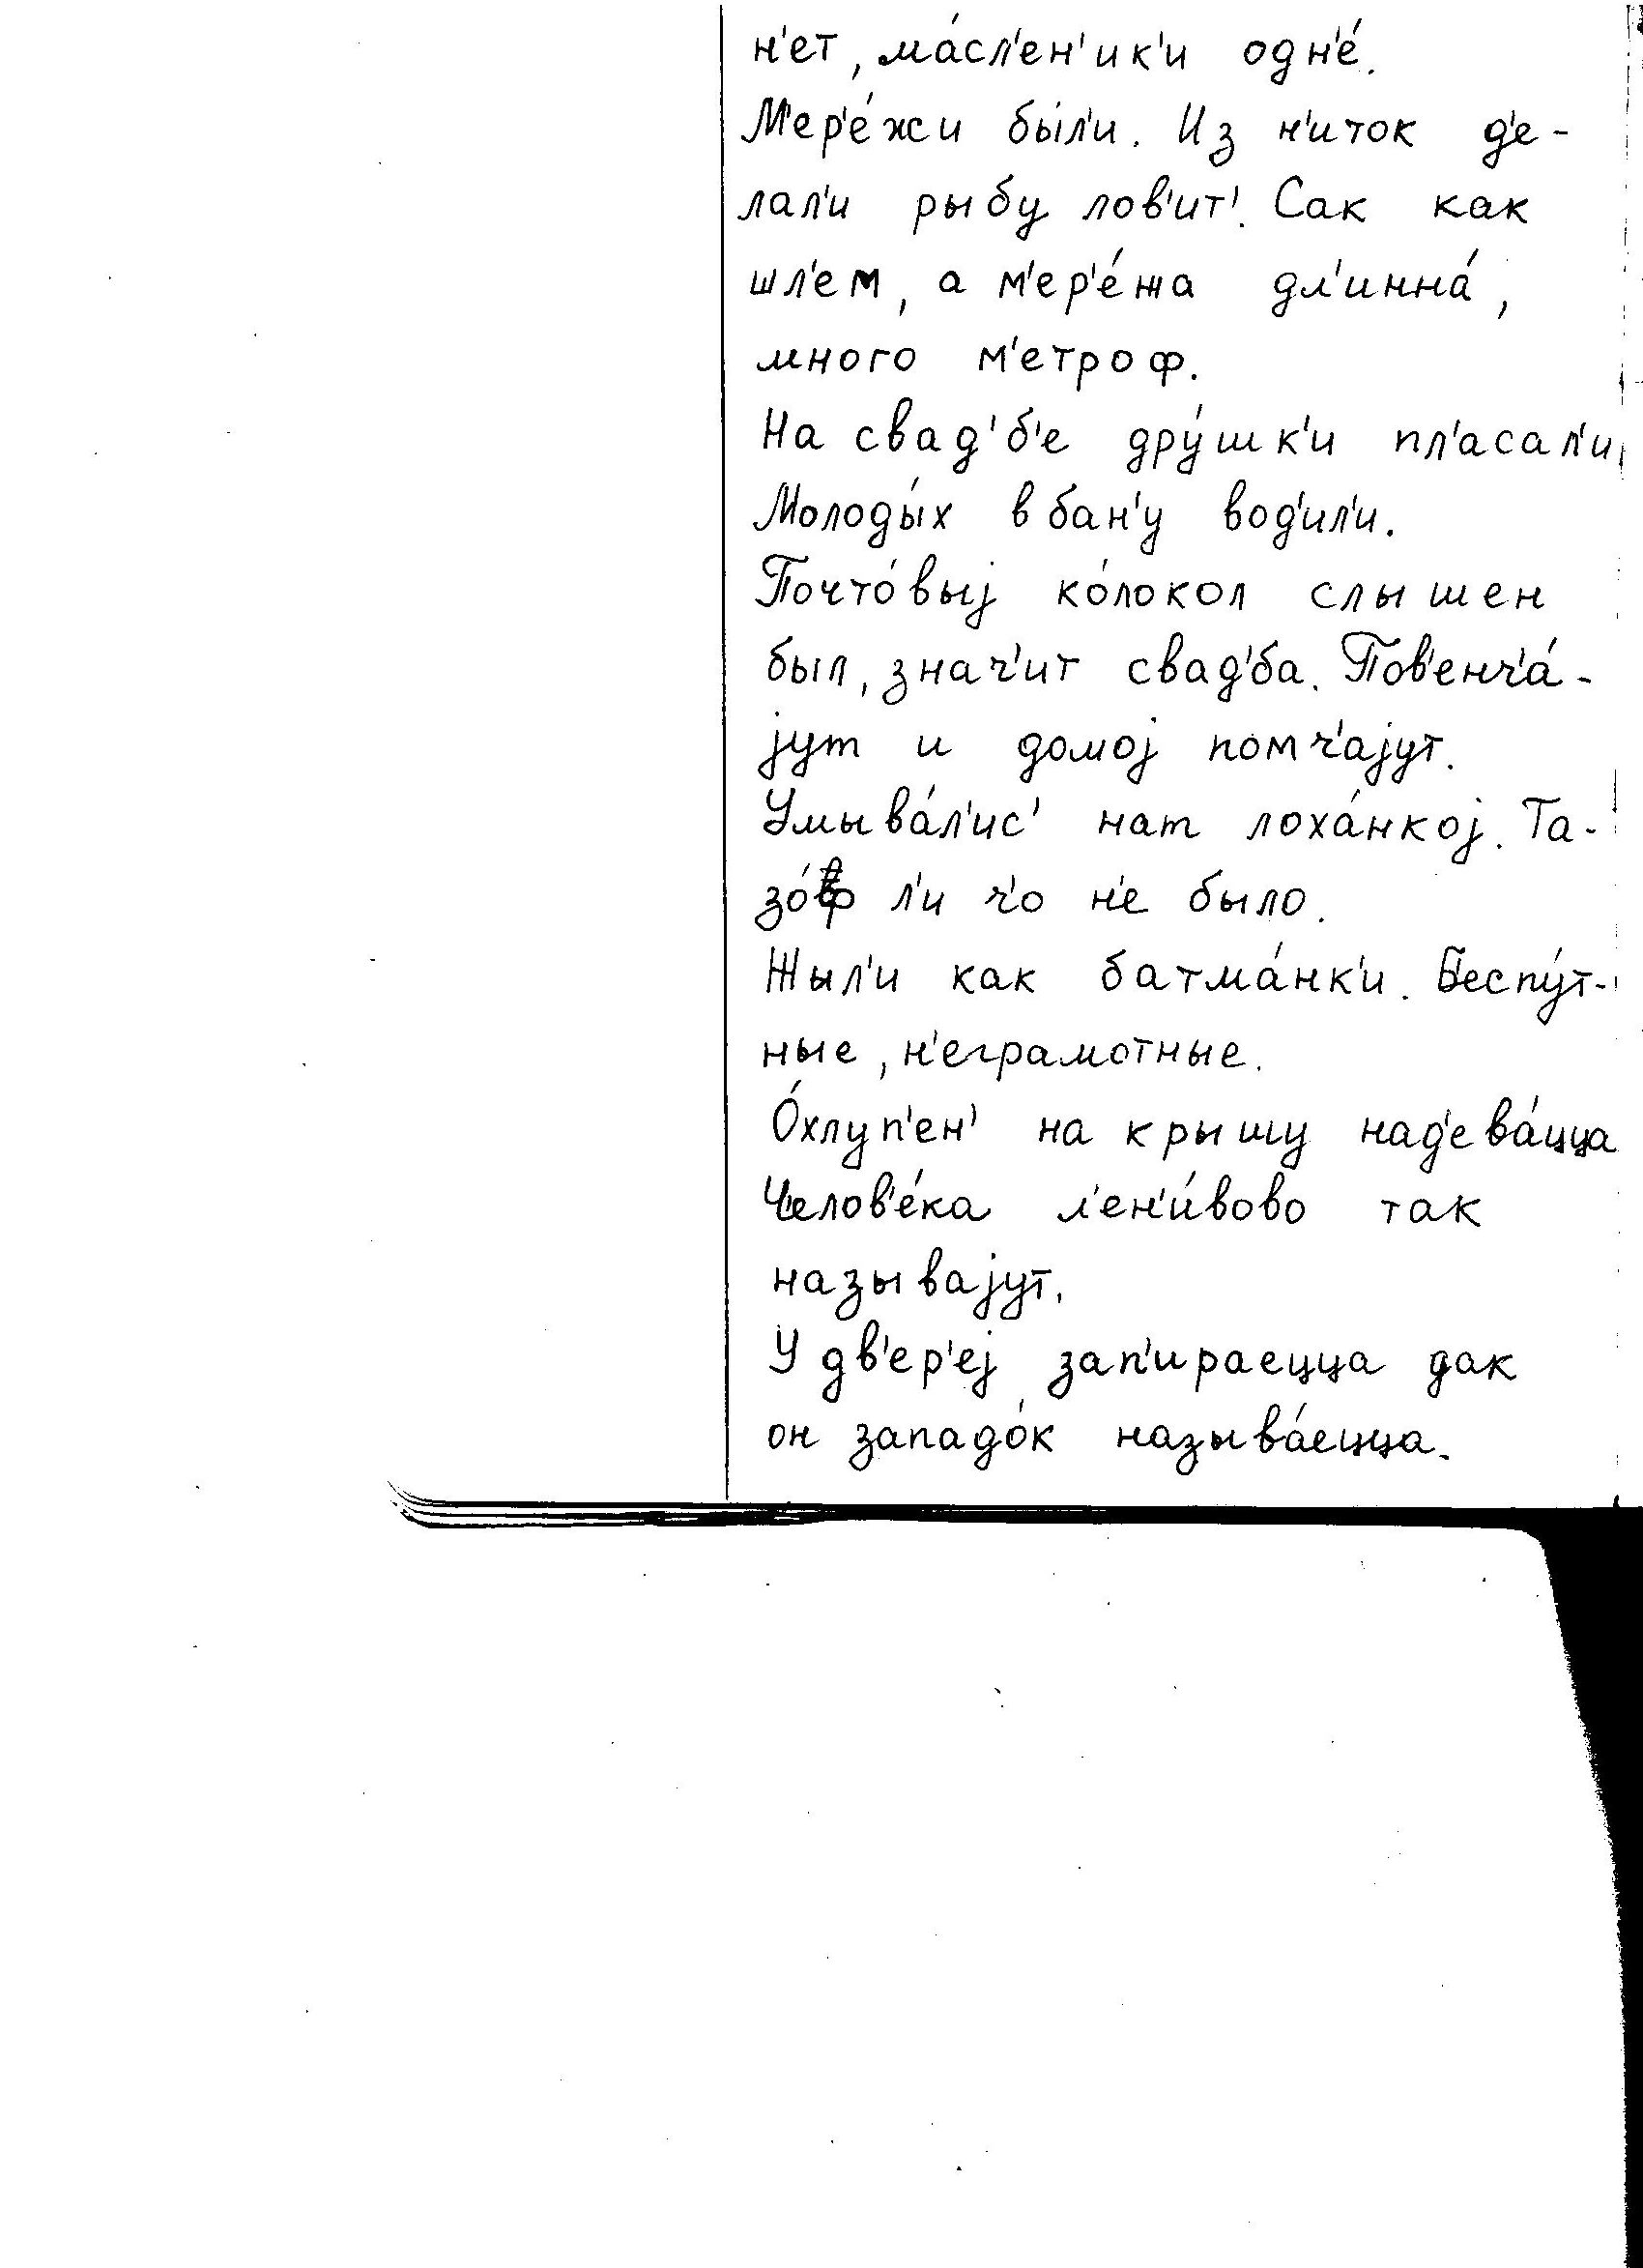 н'ет, ма́сл'ен'ик'и одн'е́.
М'ер'е́жи был'и. Из н'иток д'е-
лал'и рыбу лов'ит'. Сак как
шл'ем, а м'ер'е́жа дл'инна́,
много м'етроф.
На свад'б'е дру́шк'и пл'асал'и
Молоды́х в бан'у вод'ил'и.
Почто́выј ко́локол слышен
был, знач'ит свад'ба. Пов'енч'а́-
јут и домој помч'ајут.
Умыва́л'ис' нат лоха́нкој. Та-
зо́ф л'и ч'о н'е было.
Жыл'и как батма́нк'и. Б'еспу́т-
ные, н'еграмотные.
О́хлуп'ен' на крышу над'ева́цца
Ч'елов'е́ка л'ен'и́вово так
называјут.
У дв'ер'еј зап'ираецца дак
он западо́к называ́ецца.